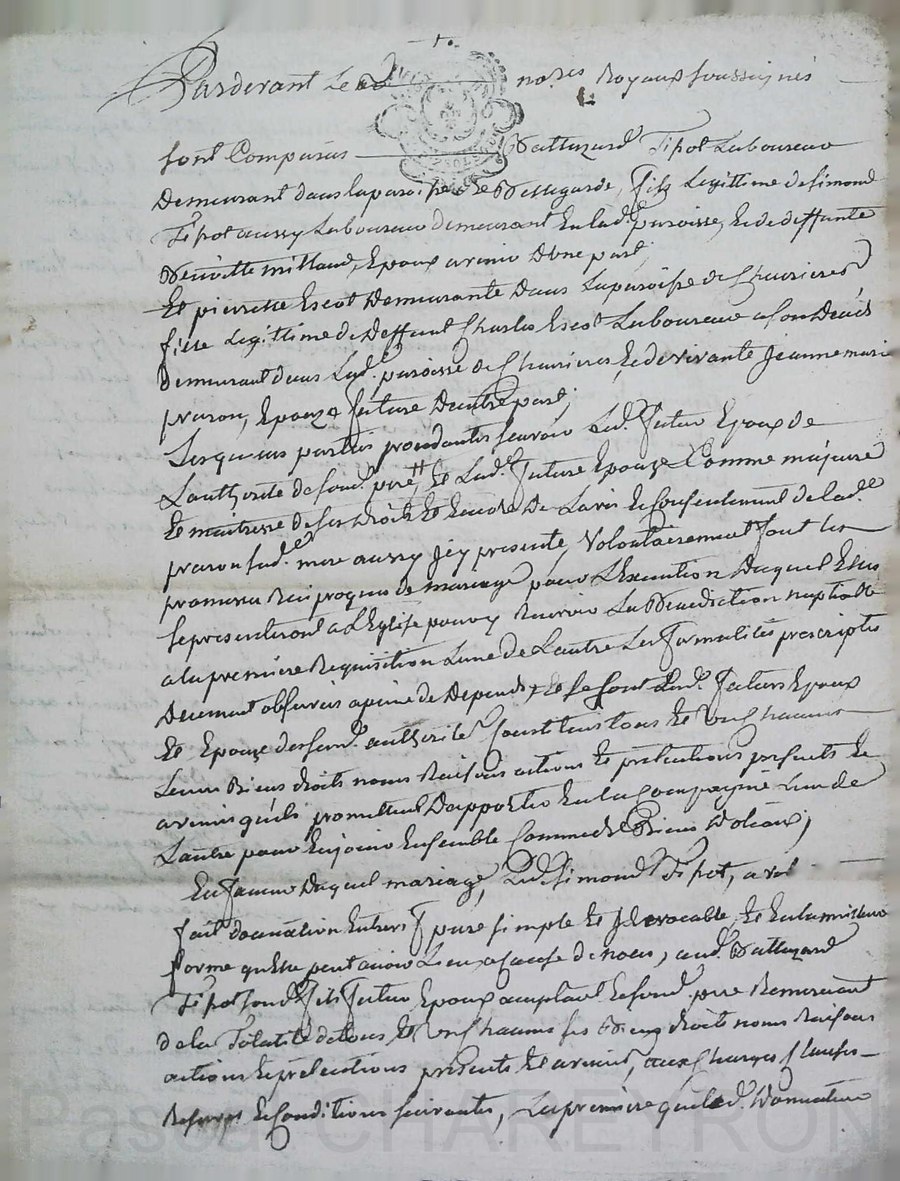 Pardevant Les no.res Royaux soussignés
sont Comparus Baltazard Tipot Laboureur
Demeurant dans la paroisse de Bellegarde, fils Legittime de simond
Tipot aussy Laboureur demeurant En lad.e paroisse, Et de deffunte
Benoitte millaud, Epoux avenir D'une part,
Et pierrette Escot Demeurante Dans La paroisse de Chevrieres
fille Legittime de Deffunt Charles Escot Laboureur a son Deces
Demeurant dans Lad.e paroisse de Chevrieres Et de vivante Jeanne marie
praron, Epouze future D'autre part,
Lesquelles parties procedantes scavoir Led. futur Epoux de
L'authorité de sond. pere, Et Lad.e future Epouze Comme majeure
Et maitresse de ses Droits Et Encore De L'avis Et Consentement de lad.e
praron sad.e mere aussy Icy presente, Volontairement font les
promesses Reciproques de mariage pour L'Execution Duquel Elles
se presenteront a L'Eglise pour y Recevoir La Benediction nuptialle
a la premiere Requisition L'une de L'autre Les formalités prescriptes
Decement observées a peine de Depends, Et se sont Lesd. futurs Epoux
Et Epouze desd. authorité Constitués tous Et Uns Chacuns
Leurs Biens droits noms Raisons actions Et pretentions presents Et
avenir qu'ils promettent D'apporter En la Compagnie L'un de
L'autre pour En jouir Ensemble Comme de Biens Dotaux,
En faveur Duquel mariage, Led. simond Tipot, a
fait donnation Entrevifs pure simple Et Irrevocable, Et En la meilleure
forme qu'Elle peut avoir Lieu a Cause de Noces, aud. Baltazard
Tipot sond. fils futur Epoux acceptant Et sond. pere Remerciant
de la Totalité de tous Et Uns Chacuns ses Biens droits noms Raisons
actions Et pretentions presents Et avenir, aux Charges Clauses
Reserves Et Conditions suivantes, La premiere que led. Donnateur
Pascal CHARETRON